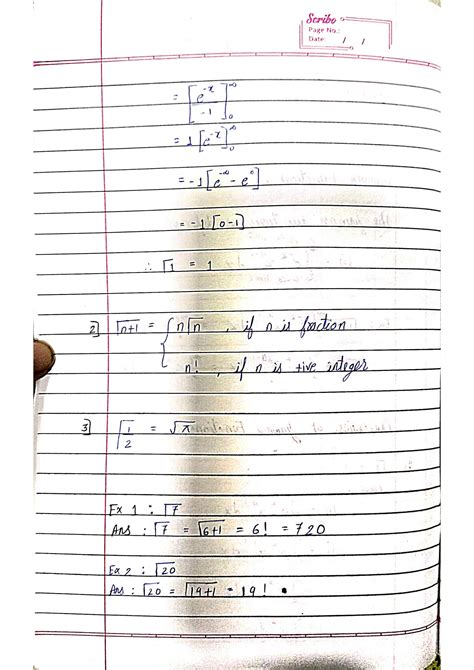 Scribo
Page No.:
Date: / /
= [e^-x / -1]_0^∞
= 1 [e^-x]_0^∞
= -1 [e^-∞ - e^0]
= -1 [0-1]
∴ Γ1 = 1
2] Γn+1 = { nΓn , if n is fraction
n! , if n is +ive integer
3] Γ1/2 = √π
Ex 1 : Γ7
Ans : Γ7 = Γ6+1 = 6! = 720
Ex 2 : Γ20
Ans : Γ20 = Γ19+1 = 19!